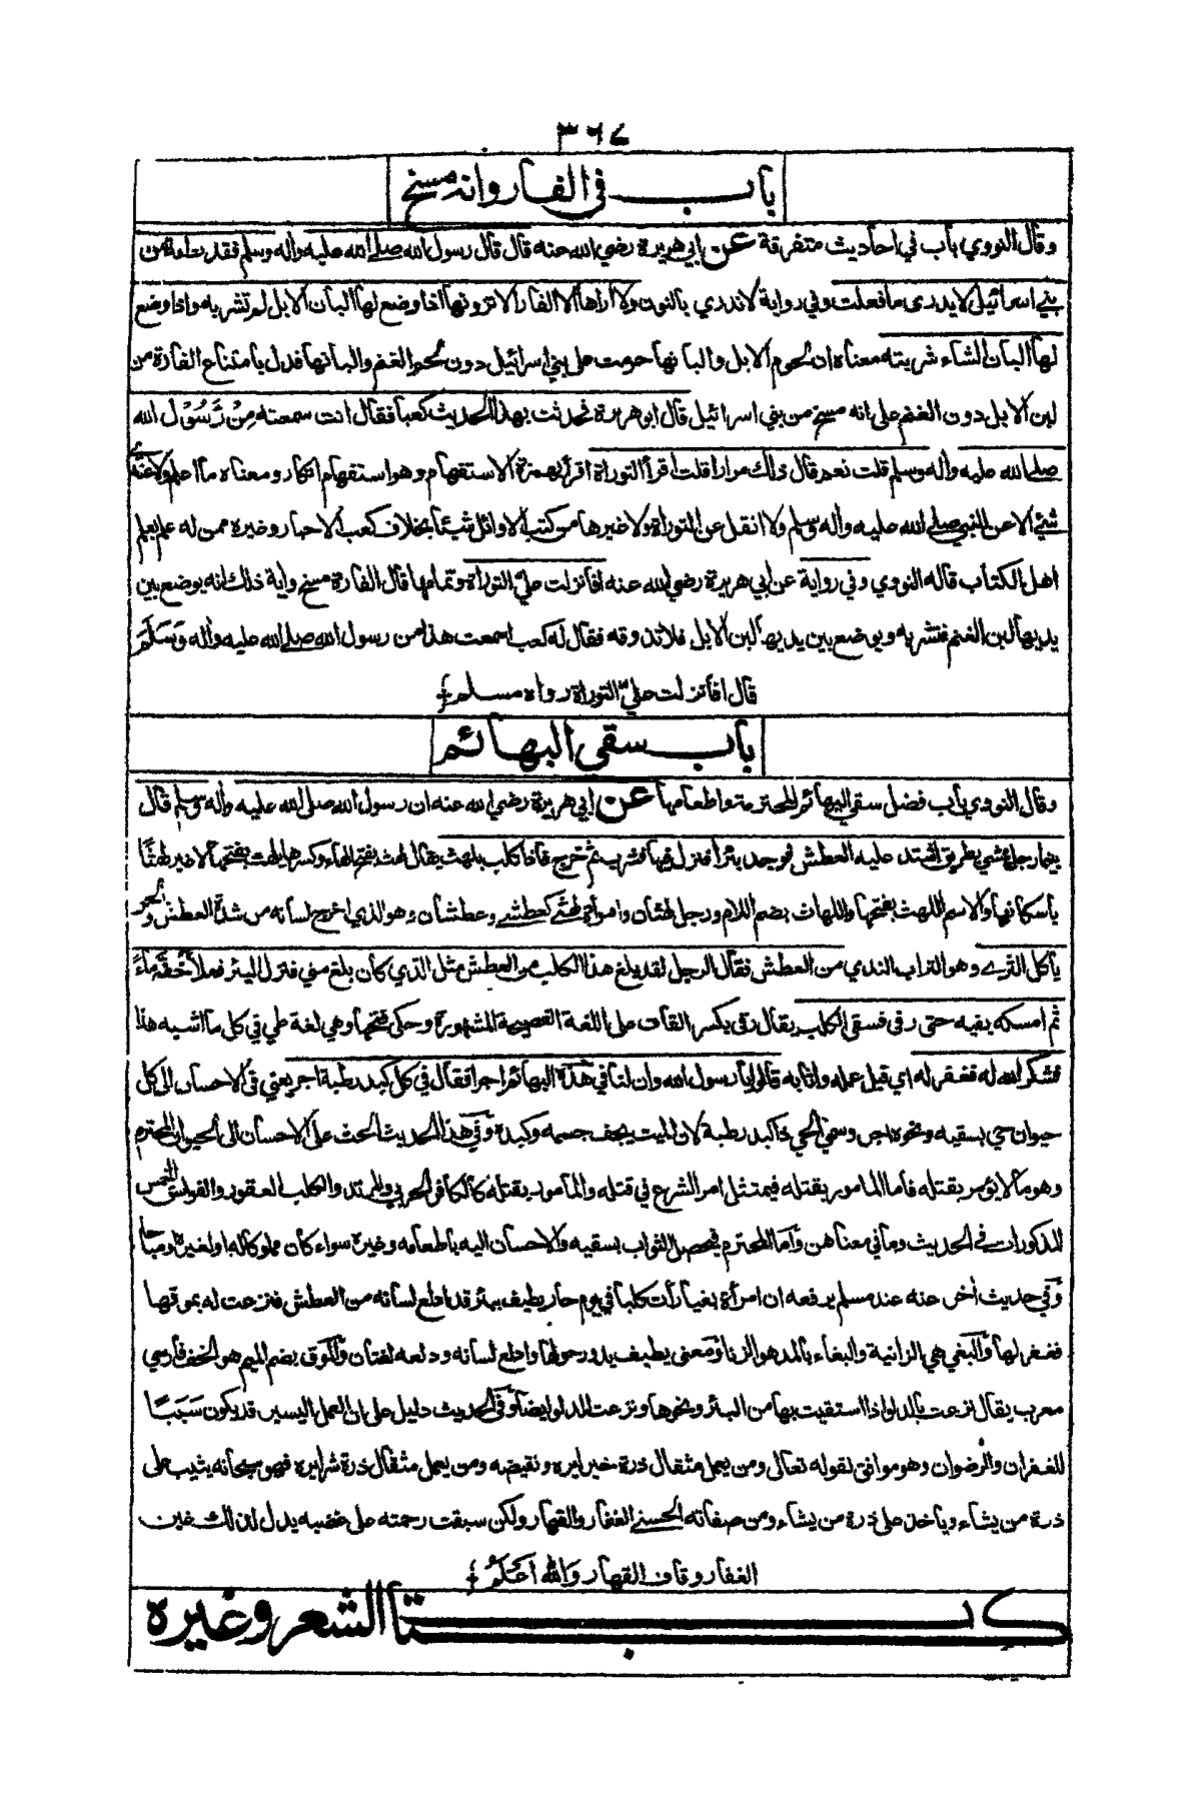 ٣٦٧
باب في الفار وانه مسخ
وقال النووي باب في احاديث متفرقة عن ابي هريرة رضي الله عنه قال قال رسول الله صلى الله عليه واله وسلم فقدت امة من
بني اسرائيل لا يدرى ما فعلت وفي رواية لا ندري بالنون ولا اراها الا الفار الا ترونها اذا وضع لها البان الابل لم تشربه واذا وضع
لها البان الشاء شربته معناه ان لحوم الابل والبانها حرمت على بني اسرائيل دون لحوم الغنم والبانها فدل بامتناع الفارة من
لبن الابل دون الغنم على انه مسخ من بني اسرائيل قال ابو هريرة فحدثت بهذا الحديث كعبا فقال انت سمعته من رسول الله
صلى الله عليه واله وسلم قلت نعم قال ذلك مرارا قلت اقرأ التوراة اقرأ بهمزة الاستفهام وهو استفهام انكار ومعناه ما اعلم ولا عندي
شئ الا عن النبي صلى الله عليه واله وسلم ولا انقل عن التوراة ولا غيرها من كتب الاوائل شيئا بخلاف كعب الاحبار وغيره ممن له علم بعلم
اهل الكتاب قاله النووي وفي رواية عن ابي هريرة رضي الله عنه افأنزلت علي التوراة وتمامها قال الفارة مسخ واية ذلك انه يوضع بين
يديها لبن الغنم فتشربه ويوضع بين يديها لبن الابل فلا تذوقه فقال له كعب اسمعت هذا من رسول الله صلى الله عليه واله وسلم
قال افأنزلت علي التوراة رواه مسلم
باب سقي البهائم
وقال النووي باب فضل سقي البهائم المحترمة واطعامها عن ابي هريرة رضي الله عنه ان رسول الله صلى الله عليه واله وسلم قال
بينما رجل يمشي بطريق اشتد عليه العطش فوجد بئرا فنزل فيها فشرب ثم خرج فاذا كلب يلهث يقال لهث بفتح الهاء وكسرها يلهث بفتحها لا غير لهثا
باسكانها والاسم اللهث بفتحها واللهاث بضم اللام ورجل لهثان وامرأة لهثى كعطشى وعطشان وهو الذي اخرج لسانه من شدة العطش والحر
يأكل الثرى وهو التراب الندي من العطش فقال الرجل لقد بلغ هذا الكلب من العطش مثل الذي كان بلغ مني فنزل البئر فملأ خفه ماء
ثم امسكه بفيه حتى رقى فسقى الكلب يقال رقى بكسر القاف على اللغة الفصيحة المشهورة وحكي فتحها وهي لغة طي في كل ما اشبه هذا
فشكر الله له فغفر له اي قبل عمله واثابه قالوا يا رسول الله وان لنا في هذه البهائم اجرا فقال في كل كبد رطبة اجر يعني في الاحسان الى كل
حيوان حي بسقيه ونحوه اجر وسمي الحي ذا كبد رطبة لان الميت يجف جسمه وكبده وفي هذا الحديث الحث على الاحسان الى الحيوان المحترم
وهو ما لا يؤمر بقتله فاما المامور بقتله فيمتثل امر الشرع في قتله والمأمور بقتله كالكافر الحربي والمرتد والكلب العقور والفواسق الخمس
المذكورات في الحديث وما في معناهن واما المحترم فيحصل الثواب بسقيه والاحسان اليه باطعامه وغيره سواء كان مملوكا له او لغيره او مباحا
وفي حديث أخر عنه عند مسلم يرفعه ان امرأة بغيا رأت كلبا في يوم حار يطيف ببئر قد ادلع لسانه من العطش فنزعت له بموقها
فغفر لها والبغي هي الزانية والبغاء بالمد هو الزنا ومعنى يطيف يدور حولها وادلع لسانه ودلعه لغتان والموق بضم الميم هو الخف فارسي
معرب يقال نزعت بالدلو اذا استقيت بها من البئر ونحوها ونزعت الدلو ايضا وفي الحديث دليل على ان العمل اليسير قد يكون سببا
للغفران والرضوان وهو موافق لقوله تعالى ومن يعمل مثقال ذرة خيرا يره ونقيضه ومن يعمل مثقال ذرة شرا يره فهو سبحانه يثيب على
ذرة من يشاء وياخذ على ذرة من يشاء ومن صفاته الحسنى الغفار والقهار ولكن سبقت رحمته على غضبه يدل لذلك غين
الغفار وقاف القهار والله أعلم
كتاب الشعر وغيره